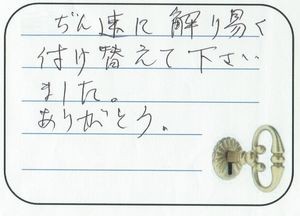 ぢん速に解り易く
付け替えて下さい
ました。
ありがとう。